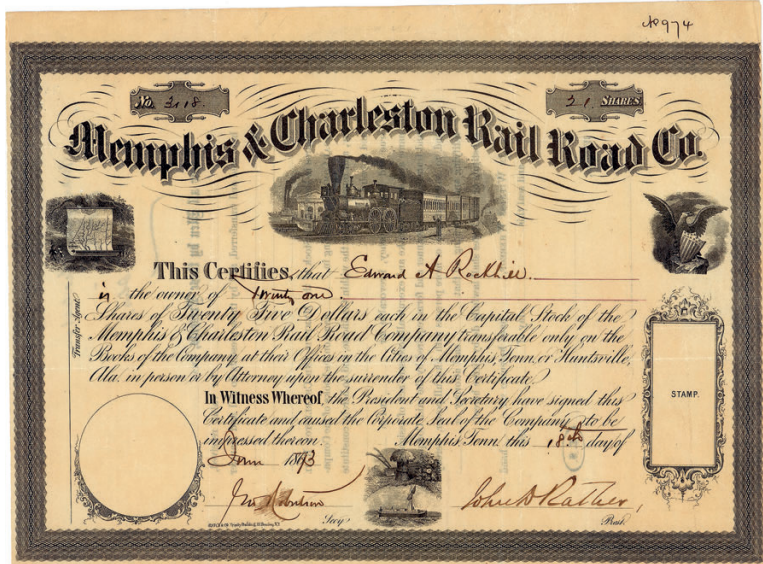 No 974
No. 3118.
21 SHARES
Memphis & Charleston Rail Road Co.
This Certifies, that Edward A Rockhill
is the owner of Twenty one
Shares of Twenty Five Dollars each in the Capital Stock of the
Memphis & Charleston Rail Road Company transferable only on the
Books of the Company, at their Offices in the Cities of Memphis Tenn. or Huntsville,
Ala. in person or by Attorney upon the surrender of this Certificate.
In Witness Whereof, the President and Secretary have signed this
Certificate and caused the Corporate Seal of the Company to be
impressed thereon. Memphis Tenn. this 18th day of
1873
Secy.
Presdt.
Transfer Agent.
STAMP.